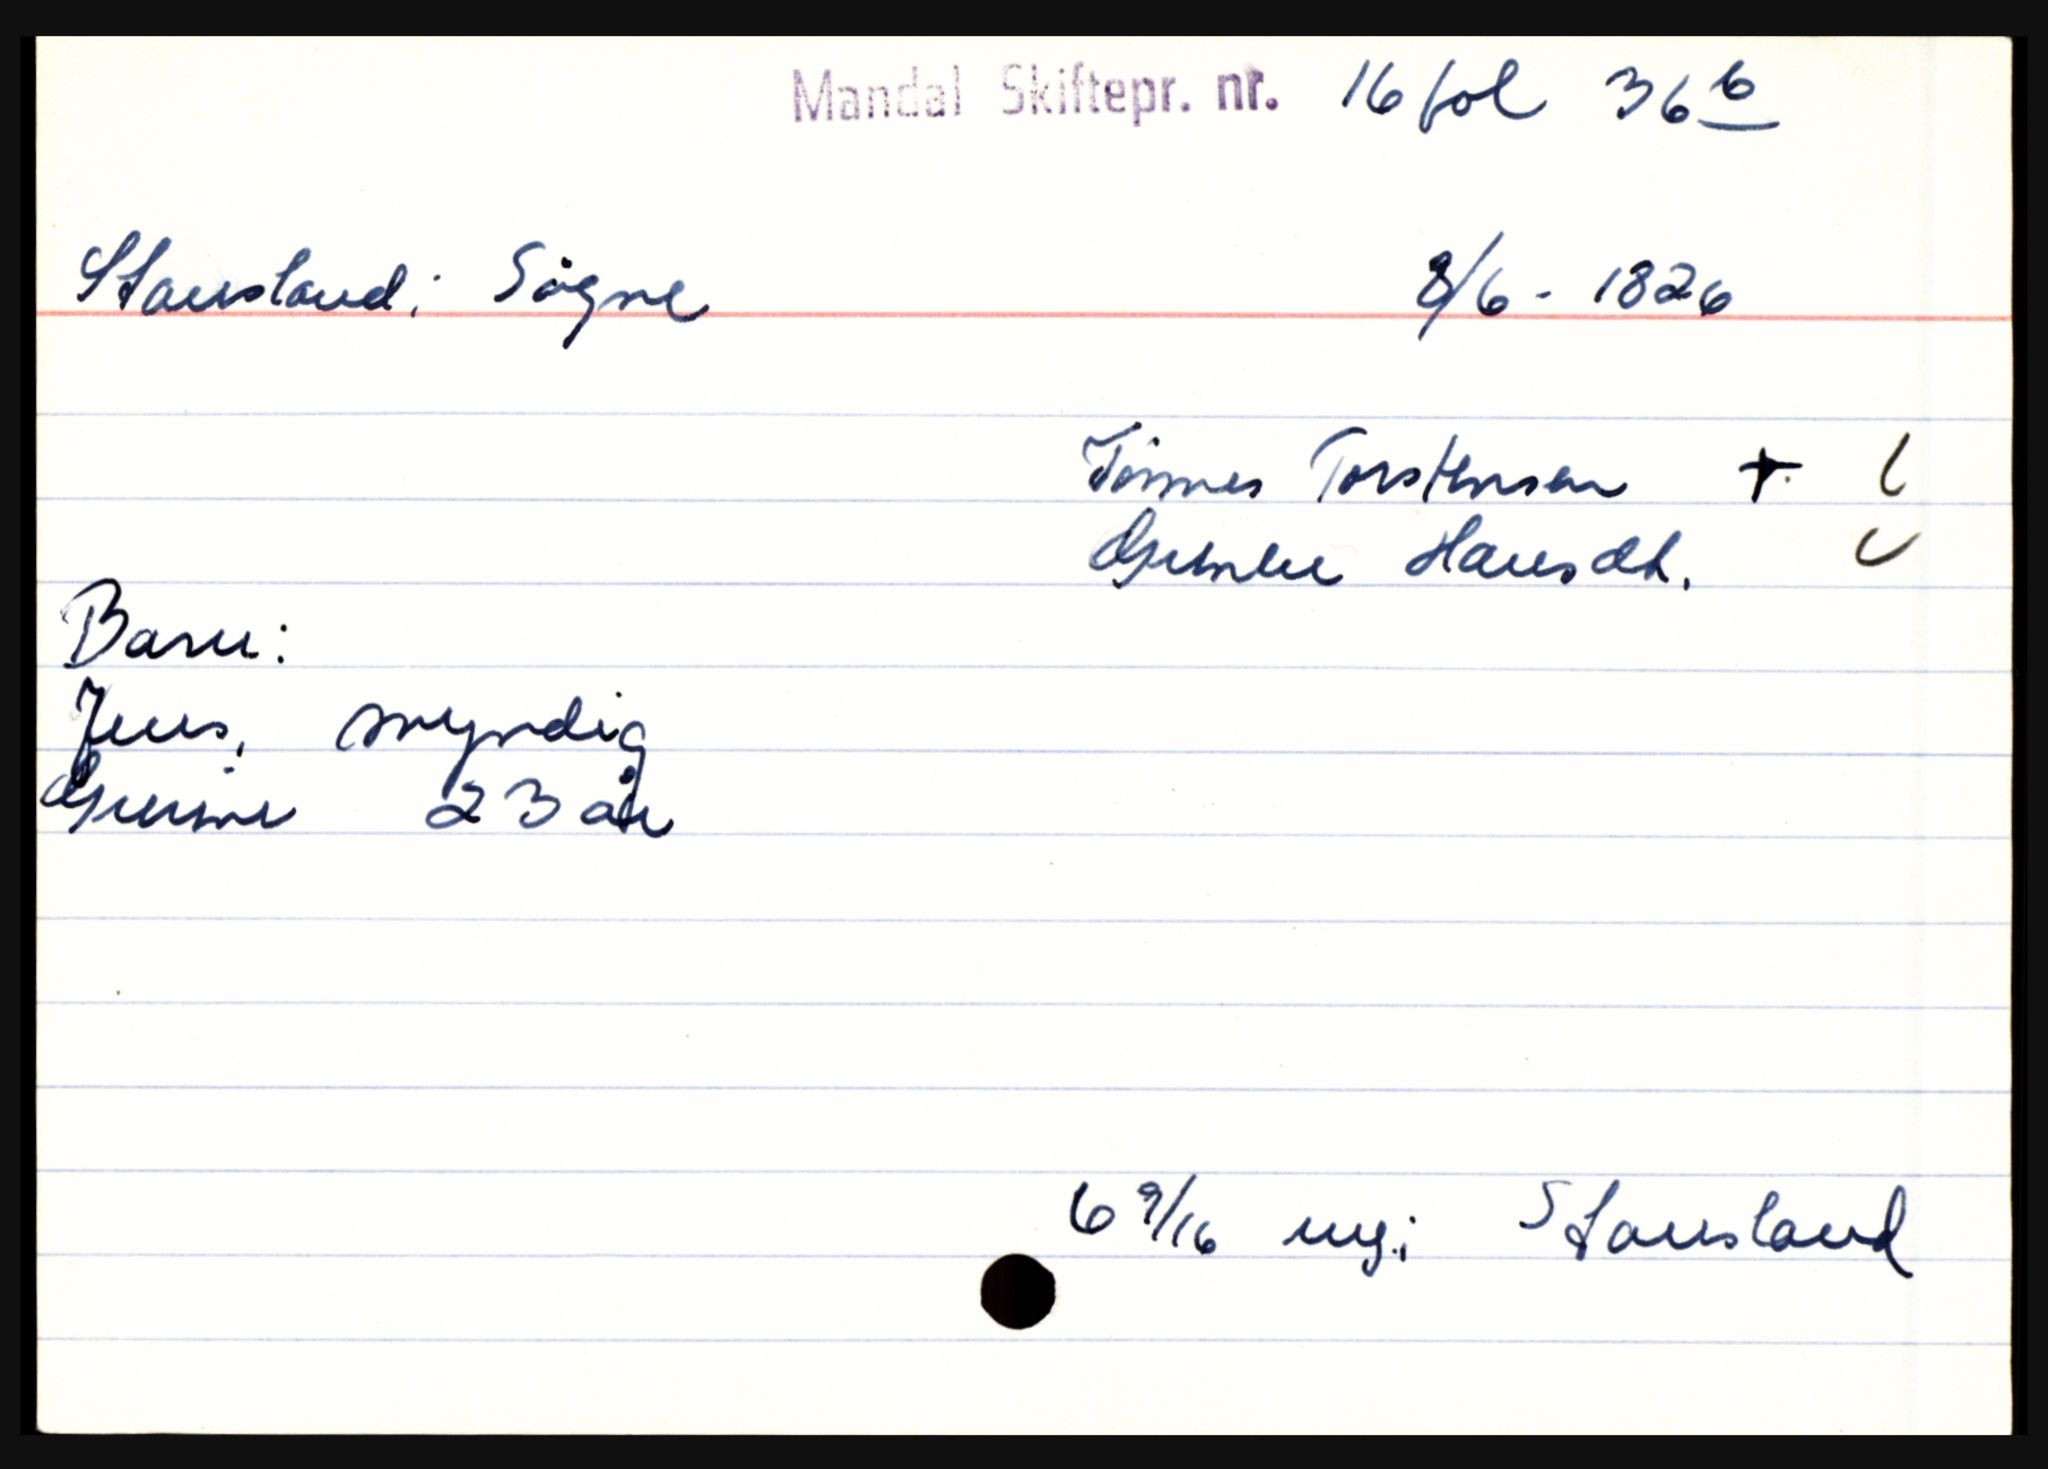 Mandal Skiftepr. nr. 16 fol 36 b
Stausland i Søgne 8/6 - 1826
Tønnes Torstensen +
Hansdt.
Barn:
Jens, myndig
23 år
6 9/16 mg i Stausland